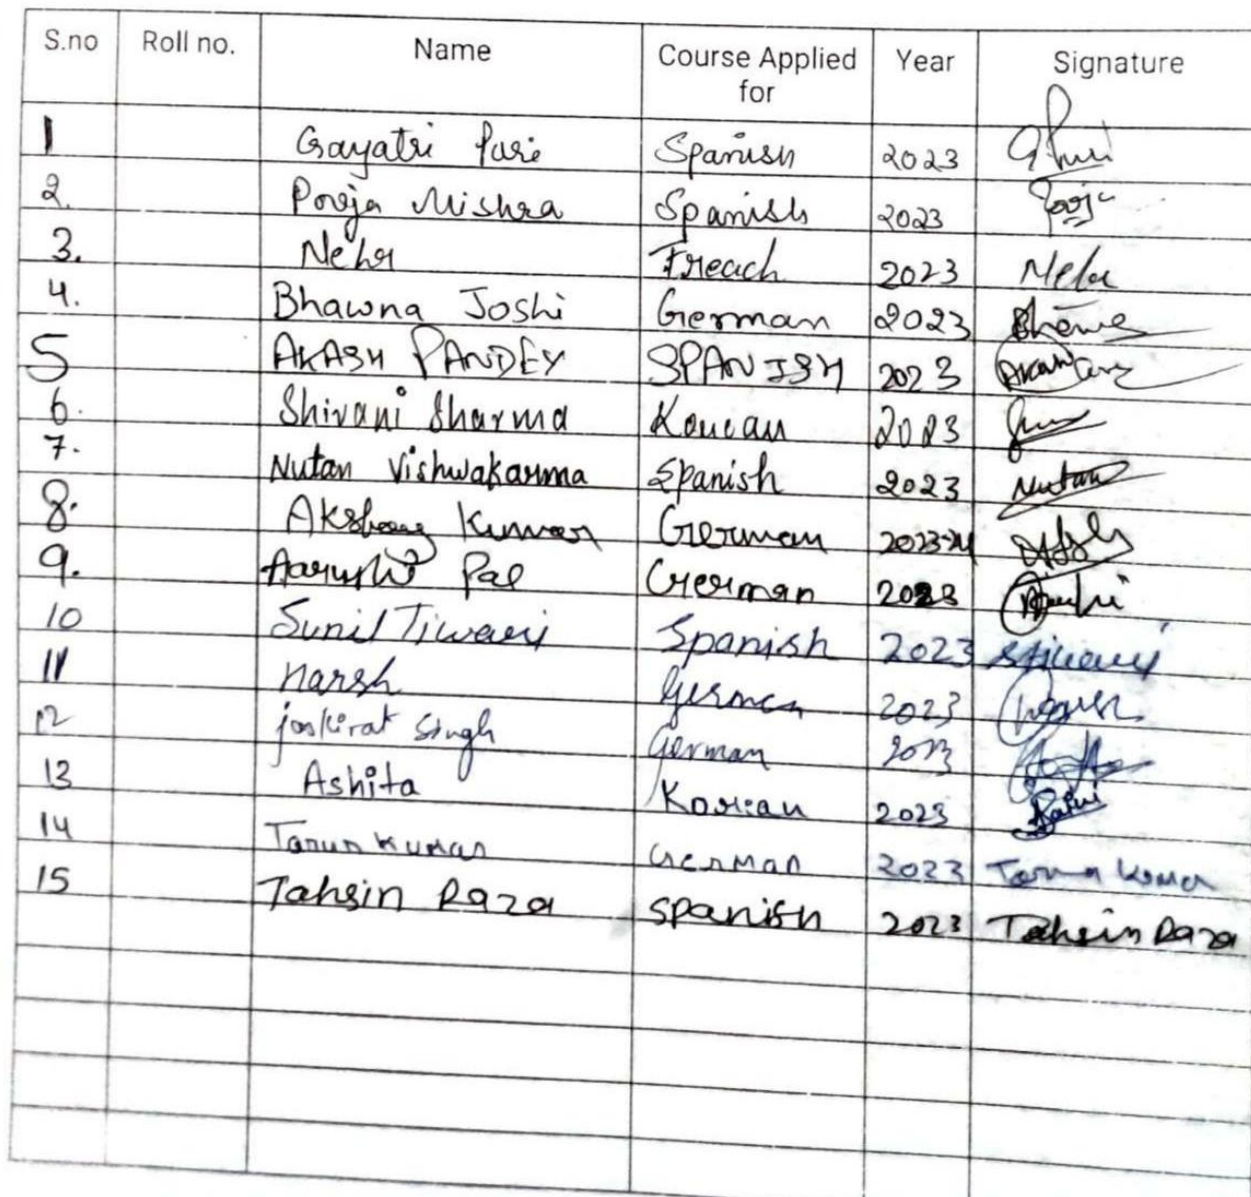 S.no Roll no. Name Course Applied for Year Signature
1 Gayatri Puri Spanish 2023
2. Pooja Mishra Spanish 2023 Pooja
3. Neha Freach 2023 Neha
4. Bhawna Joshi German 2023
5 AKASH PANDEY SPANISH 2023 Akash
6. Shivani Sharma Korean 2023
7. Nutan Vishwakarma Spanish 2023 Nutan
8. Akshay Kumar German 2023-24
9. Aarushi Pal German 2023
10 Sunil Tiwari Spanish 2023 STiwari
11 Harsh German 2023 Harsh
12 jaskirat Singh German 2023
13 Ashita Korean 2023
14 Tarun Kumar German 2023 Tarun Kumar
15 Tahsin Raza Spanish 2023 Tahsin Raza